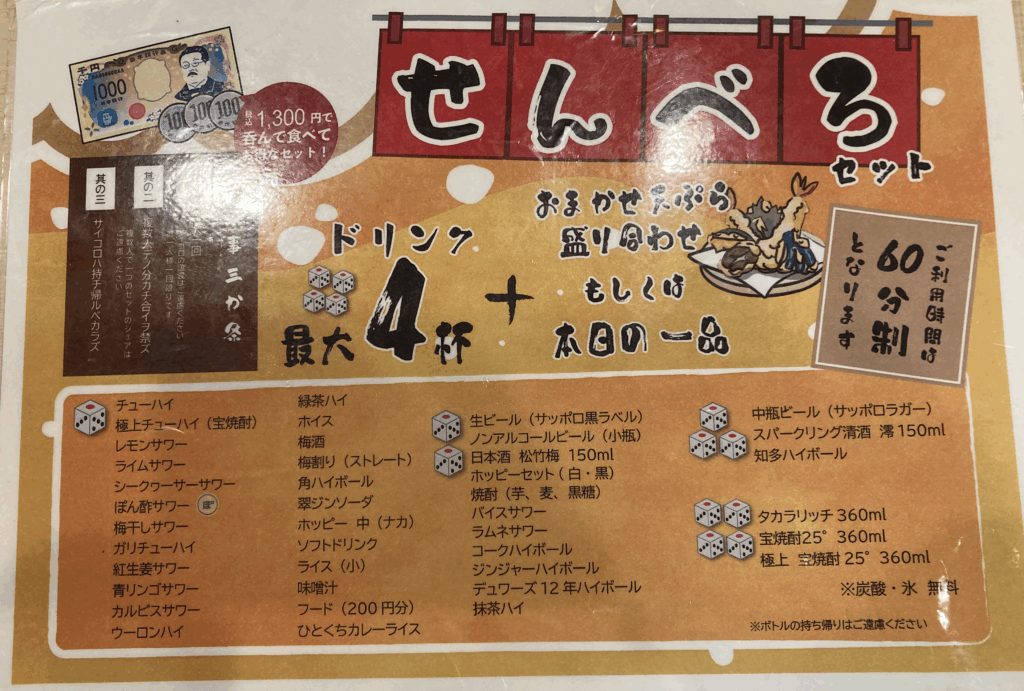 千円
日本銀行券
1000
日本銀行
100
100
100
税込 1,300円で
呑んで食べて
お得なセット！
せんべろ
セット
事三か条
其の二
複数人デノ分カチ合イヲ禁ズ
複数人で一つのセットのシェアは
ご遠慮ください
其の三
サイコロハ持チ帰ルベカラズ
ドリンク
最大4杯
+
おまかせ天ぷら
盛り合わせ
もしくは
本日の一品
ご利用時間は
60分制
となります
チューハイ
極上チューハイ（宝焼酎）
レモンサワー
ライムサワー
シークヮーサーサワー
ぽん酢サワー
梅干しサワー
ガリチューハイ
紅生姜サワー
青リンゴサワー
カルピスサワー
ウーロンハイ
緑茶ハイ
ホイス
梅酒
梅割り（ストレート）
角ハイボール
翠ジンソーダ
ホッピー 中（ナカ）
ソフトドリンク
ライス（小）
味噌汁
フード（200円分）
ひとくちカレーライス
生ビール（サッポロ黒ラベル）
ノンアルコールビール（小瓶）
日本酒 松竹梅 150ml
ホッピーセット（白・黒）
焼酎（芋、麦、黒糖）
バイスサワー
ラムネサワー
コークハイボール
ジンジャーハイボール
デュワーズ12年ハイボール
抹茶ハイ
中瓶ビール（サッポロラガー）
スパークリング清酒 澪150ml
知多ハイボール
タカラリッチ360ml
宝焼酎25°360ml
極上 宝焼酎25°360ml
※炭酸・氷 無料
※ボトルの持ち帰りはご遠慮ください